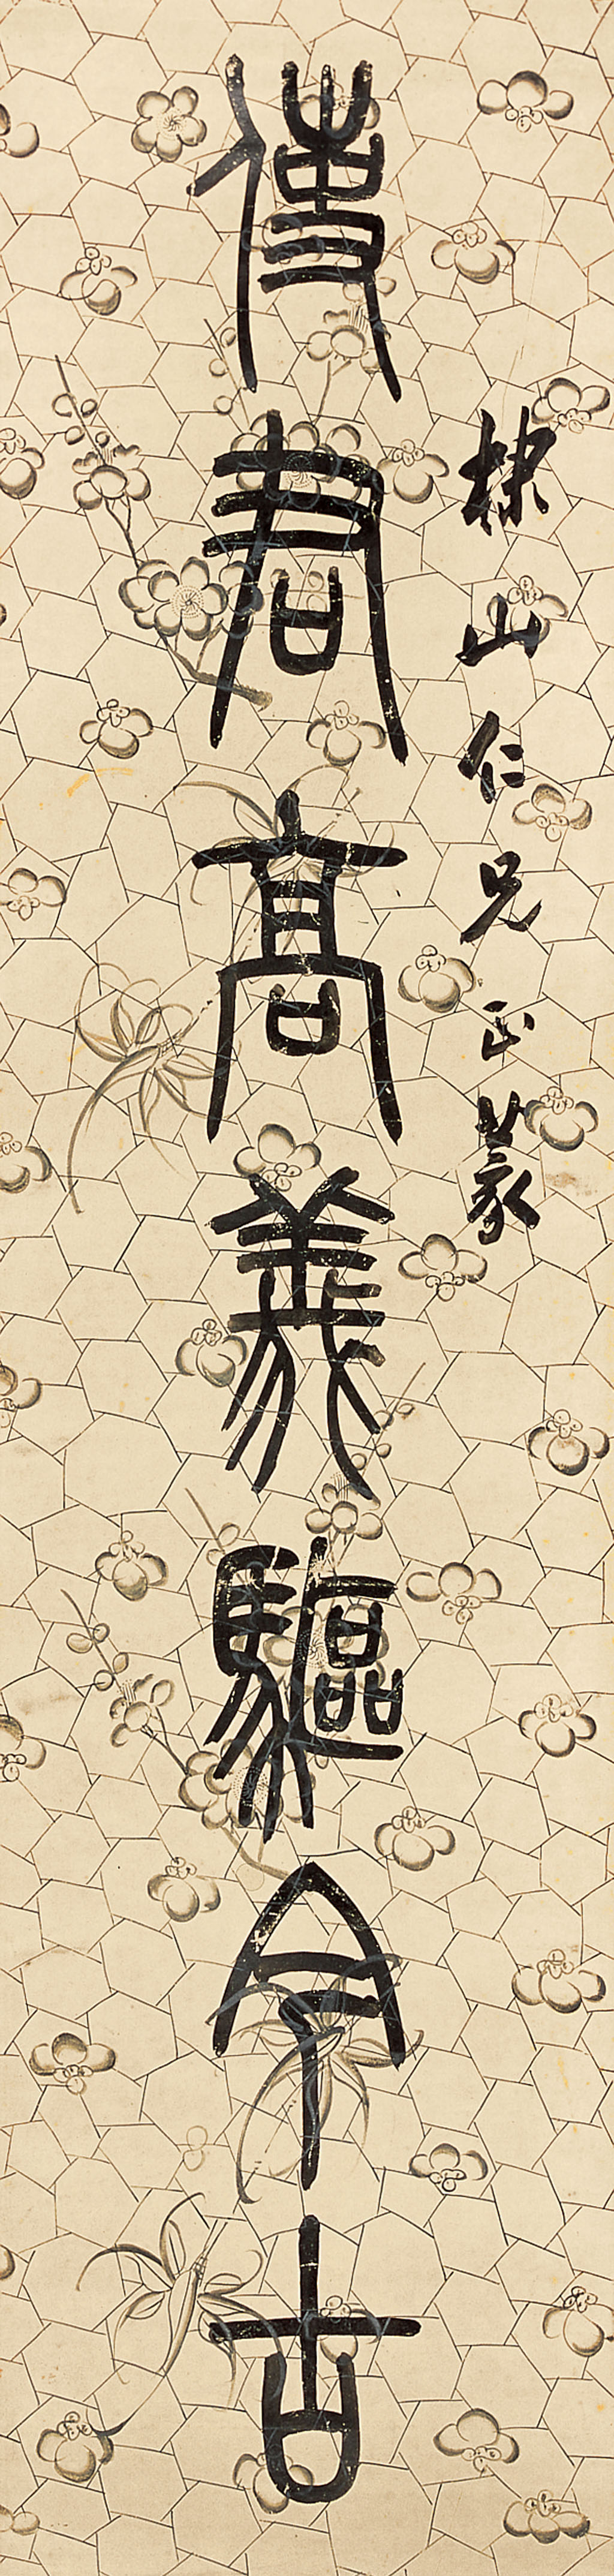 棣山仁兄正篆
使君高義驅今古